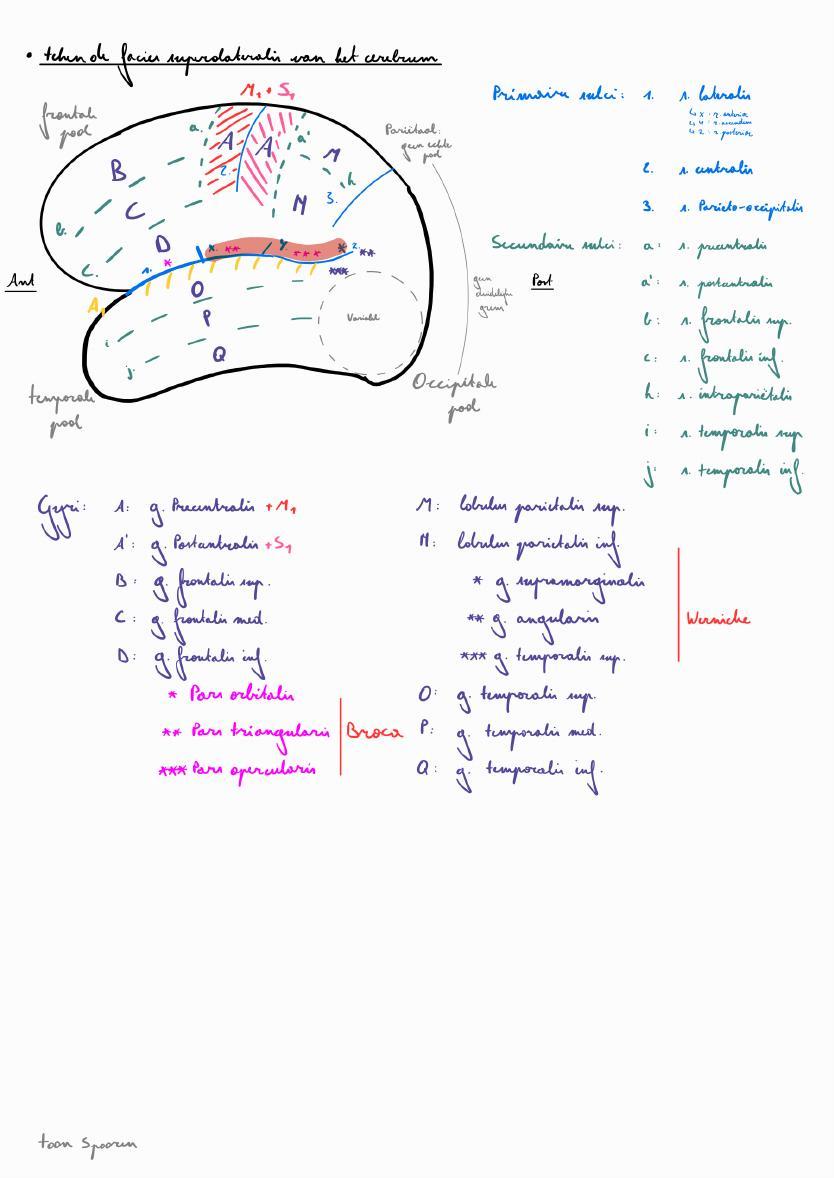 • teken de facies superolateralis van het cerebrum
M1 + S1
frontale pool
Pariëtaal: geen echte pool
a.
A
A
a'
M
B
2.
h
C
N
3.
b.
D
*
x.
**
y.
***
*
z.
**
c.
1.
***
Ant
A1
O
P
Q
i
j.
Variabel
geen duidelijke grens
Post
temporale pool
Occipitale pool
Primaire sulci: 1. s. lateralis
↳ x : r. anterior
↳ y : r. ascendens
↳ z : r. posterior
2. s. centralis
3. s. Parieto-occipitalis
Secundaire sulci: a: s. precentralis
a': s. postcentralis
b: s. frontalis sup.
c: s. frontalis inf.
h: s. intrapariëtalis
i: s. temporalis sup
j: s. temporalis inf.
Gyri: A: g. Precentralis + M1
A': g. Postcentralis + S1
B: g. frontalis sup.
C: g. frontalis med.
D: g. frontalis inf.
* Pars orbitalis
** Pars triangularis
*** Pars opercularis
Broca
M: lobulus parietalis sup.
N: lobulus parietalis inf.
* g. supramarginalis
** g. angularis
*** g. temporalis sup.
Wernicke
O: g. temporalis sup.
P: g. temporalis med.
Q: g. temporalis inf.
toon Spooren